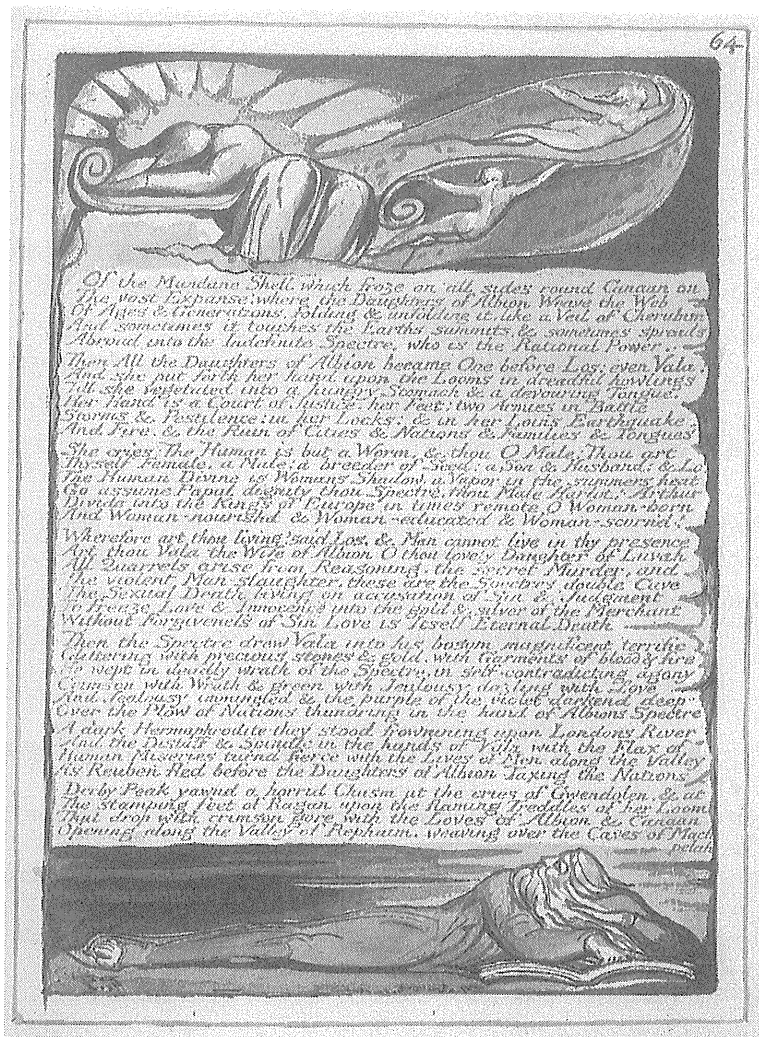 64
Of the Mundane Shell which froze on all sides round Canaan on
The vast Expanse: where the Daughters of Albion Weave the Web
Of Ages & Generations, folding & unfolding it, like a Veil of Cherubim
And sometimes it touches the Earths summits, & sometimes spreads
Abroad into the Indefinite Spectre, who is the Rational Power.
Then All the Daughters of Albion became One before Los: even Vala!
And she put forth her hand upon the Looms in dreadful howlings
Till she vegetated into a hungry Stomach & a devouring Tongue.
Her Hand is a Court of Justice, her Feet: two Armies in Battle
Storms & Pestilence: in her Locks: & in her Loins Earthquake.
And Fire. & the Ruin of Cities & Nations & Families & Tongues
She cries: The Human is but a Worm, & thou O Male: Thou art
Thyself Female, a Male: a breeder of Seed: a Son & Husband: & Lo.
The Human Divine is Womans Shadow, a Vapor in the summers heat
Go assume Papal dignity thou Spectre, thou Male Harlot! Arthur
Divide into the Kings of Europe in times remote O Woman-born
And Woman-nourishd & Woman-educated & Woman-scorn'd!
Wherefore art thou living? said Los, & Man cannot live in thy presence
Art thou Vala the Wife of Albion O thou lovely Daughter of Luvah
All Quarrels arise from Reasoning. the secret Murder, and
The violent Man-slaughter. these are the Spectres double Cave
The Sexual Death living on accusation of Sin & Judgment
To freeze Love & Innocence into the gold & silver of the Merchant
Without Forgiveness of Sin Love is Itself Eternal Death
Then the Spectre drew Vala into his bosom magnificent terrific
Glittering with precious stones & gold, with Garments of blood & fire
He wept in deadly wrath of the Spectre, in self-contradicting agony
Crimson with Wrath & green with Jealousy dazling with Love
And Jealousy immingled & the purple of the violet darkend deep
Over the Plow of Nations thundring in the hand of Albions Spectre
A dark Hermaphrodite they stood frowning upon Londons River
And the Distaff & Spindle in the hands of Vala with the Flax of
Human Miseries turnd fierce with the Lives of Men along the Valley
As Reuben fled before the Daughters of Albion Taxing the Nations
Derby Peak yawnd a horrid Chasm at the cries of Gwendolen, & at
The stamping feet of Ragan upon the flaming Treddles of her Loom
That drop with crimson gore with the Loves of Albion & Canaan
Opening along the Valley of Rephaim, weaving over the Caves of Mach
pelah